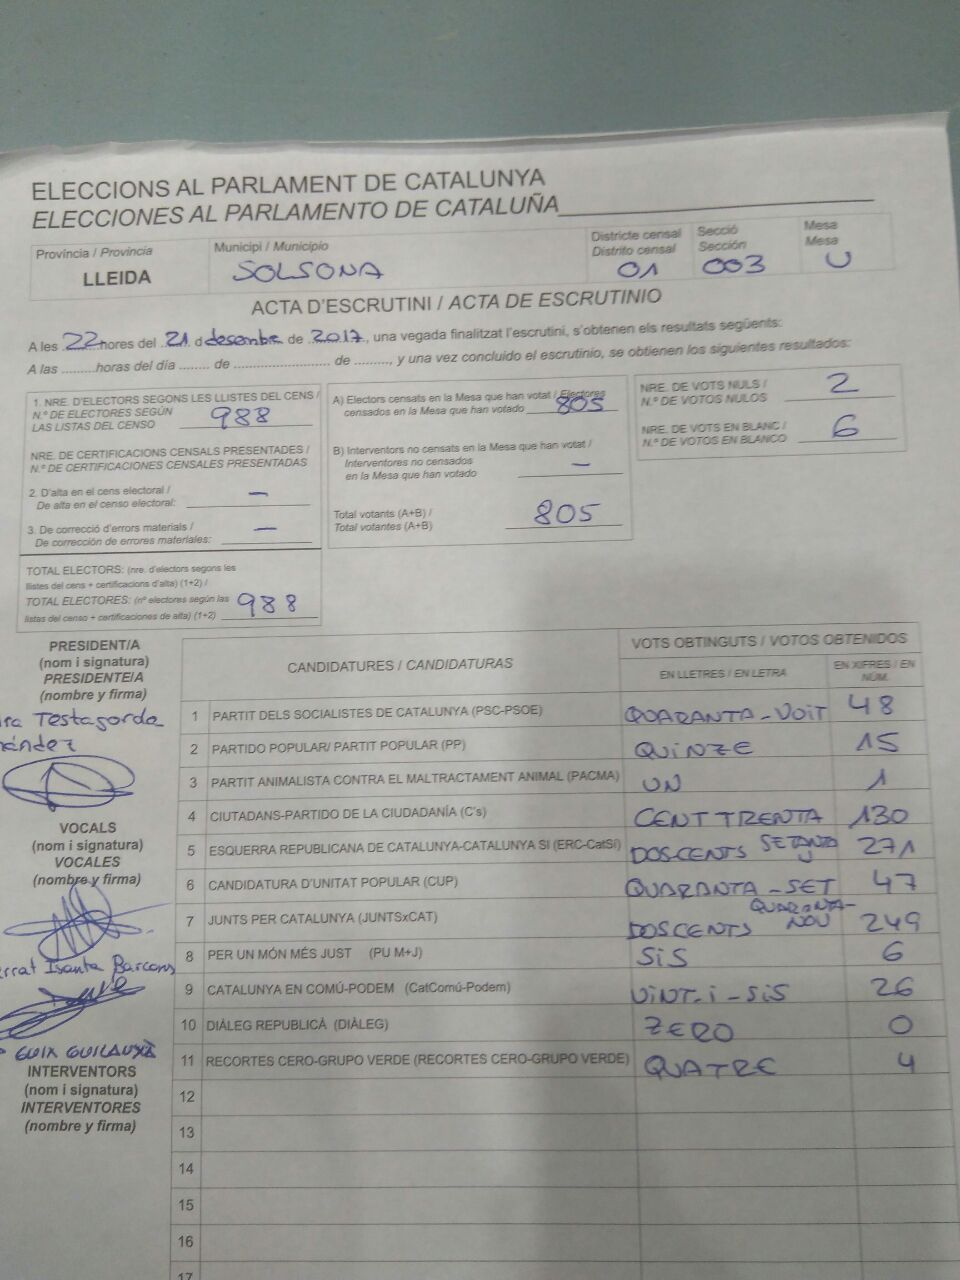 ELECCIONS AL PARLAMENT DE CATALUNYA
ELECCIONES AL PARLAMENTO DE CATALUÑA
Província / Provincia
LLEIDA
Municipi / Municipio
SOLSONA
Districte censal
Distrito censal
01
Secció
Sección
003
Mesa
Mesa
U
ACTA D'ESCRUTINI / ACTA DE ESCRUTINIO
A les 22 hores del 21 d desembre de 2017, una vegada finalitzat l'escrutini, s'obtenen els resultats següents:
A las .........horas del día ........ de ......................... de .........., y una vez concluido el escrutinio, se obtienen los siguientes resultados:
1. NRE. D'ELECTORS SEGONS LES LLISTES DEL CENS /
N.º DE ELECTORES SEGÚN
LAS LISTAS DEL CENSO 988
NRE. DE CERTIFICACIONS CENSALS PRESENTADES /
N.º DE CERTIFICACIONES CENSALES PRESENTADAS
2. D'alta en el cens electoral /
De alta en el censo electoral: –
3. De correcció d'errors materials /
De corrección de errores materiales: –
TOTAL ELECTORS: (nre. d'electors segons les
llistes del cens + certificacions d'alta) (1+2) /
TOTAL ELECTORES: (nº electores según las
listas del censo + certificaciones de alta) (1+2) 988
A) Electors censats en la Mesa que han votat / Electores
censados en la Mesa que han votado 805
B) Interventors no censats en la Mesa que han votat /
Interventores no censados
en la Mesa que han votado –
Total votants (A+B) /
Total votantes (A+B) 805
NRE. DE VOTS NULS /
N.º DE VOTOS NULOS 2
NRE. DE VOTS EN BLANC /
N.º DE VOTOS EN BLANCO 6
PRESIDENT/A
(nom i signatura)
PRESIDENTE/A
(nombre y firma)
Testagorda
VOCALS
(nom i signatura)
VOCALES
(nombre y firma)
Isanta Barcons
GUIX GUILANYÀ
INTERVENTORS
(nom i signatura)
INTERVENTORES
(nombre y firma)
CANDIDATURES / CANDIDATURAS
VOTS OBTINGUTS / VOTOS OBTENIDOS
EN LLETRES / EN LETRA
EN XIFRES / EN
NÚM.
1 PARTIT DELS SOCIALISTES DE CATALUNYA (PSC-PSOE) QUARANTA-VOIT 48
2 PARTIDO POPULAR/ PARTIT POPULAR (PP) QUINZE 15
3 PARTIT ANIMALISTA CONTRA EL MALTRACTAMENT ANIMAL (PACMA) UN 1
4 CIUTADANS-PARTIDO DE LA CIUDADANÍA (C's) CENT TRENTA 130
5 ESQUERRA REPUBLICANA DE CATALUNYA-CATALUNYA SI (ERC-CatSí) DOS-CENTS SETANTA U 271
6 CANDIDATURA D'UNITAT POPULAR (CUP) QUARANTA-SET 47
7 JUNTS PER CATALUNYA (JUNTSxCAT) DOSCENTS QUARANTA-NOU 249
8 PER UN MÓN MÉS JUST (PU M+J) SIS 6
9 CATALUNYA EN COMÚ-PODEM (CatComú-Podem) VINT-I-SIS 26
10 DIÀLEG REPUBLICÀ (DIÀLEG) ZERO 0
11 RECORTES CERO-GRUPO VERDE (RECORTES CERO-GRUPO VERDE) QUATRE 4
12
13
14
15
16
17